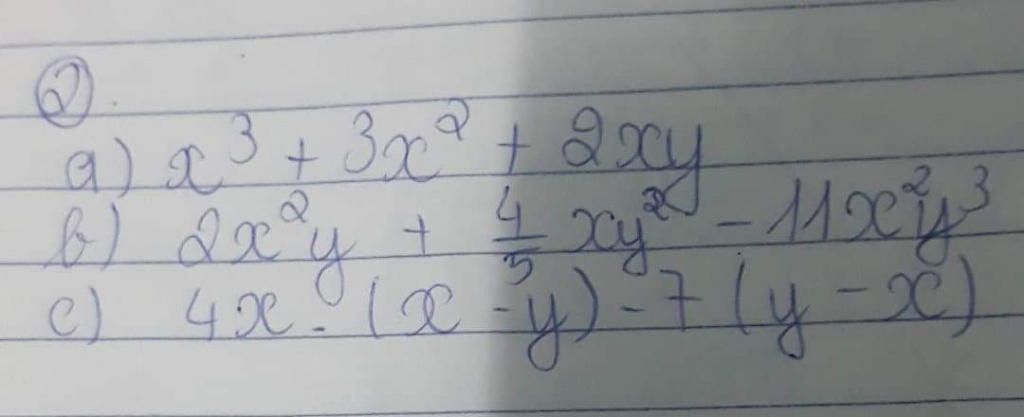 ②.
a) x³ + 3x² + 2xy
b) 2x²y + 4/5 xy² - 11x²y³
c) 4x . (x - y) - 7 (y - x)